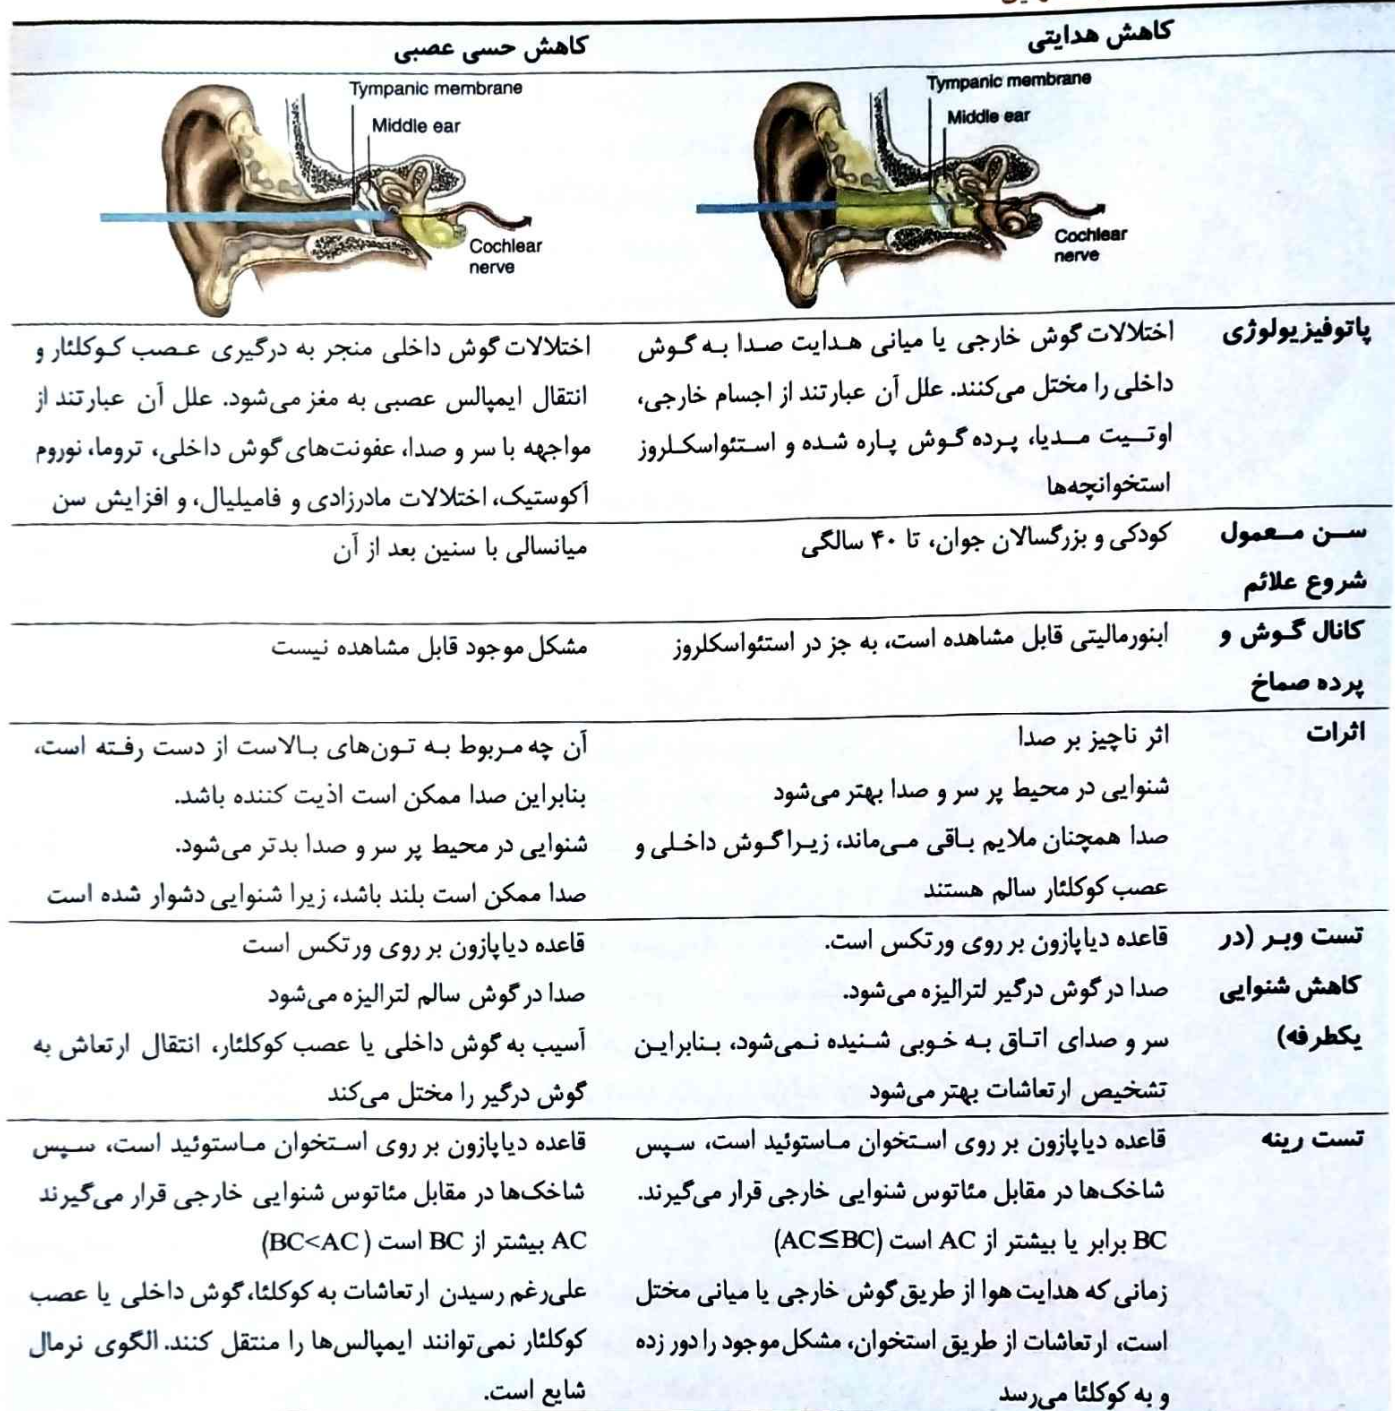 کاهش هدایتی
کاهش حسی عصبی
Tympanic membrane
Middle ear
Cochlear
nerve
Tympanic membrane
Middle ear
Cochlear
nerve
پاتوفیزیولوژی
اختلالات گوش خارجی یا میانی هدایت صدا به گوش
داخلی را مختل می‌کنند. علل آن عبارتند از اجسام خارجی،
اوتیت مدیا، پرده گوش پاره شده و استئواسکلروز
استخوانچه‌ها
اختلالات گوش داخلی منجر به درگیری عصب کوکلئار و
انتقال ایمپالس عصبی به مغز می‌شود. علل آن عبارتند از
مواجهه با سر و صدا، عفونت‌های گوش داخلی، تروما، نوروم
آکوستیک، اختلالات مادرزادی و فامیلیال، و افزایش سن
سن معمول
شروع علائم
کودکی و بزرگسالان جوان، تا ۴۰ سالگی
میانسالی با سنین بعد از آن
کانال گوش و
پرده صماخ
ابنورمالیتی قابل مشاهده است، به جز در استئواسکلروز
مشکل موجود قابل مشاهده نیست
اثرات
اثر ناچیز بر صدا
شنوایی در محیط پر سر و صدا بهتر می‌شود
صدا همچنان ملایم باقی می‌ماند، زیرا گوش داخلی و
عصب کوکلئار سالم هستند
آن چه مربوط به تون‌های بالاست از دست رفته است،
بنابراین صدا ممکن است اذیت کننده باشد.
شنوایی در محیط پر سر و صدا بدتر می‌شود.
صدا ممکن است بلند باشد، زیرا شنوایی دشوار شده است
تست وبر (در
کاهش شنوایی
یکطرفه)
قاعده دیاپازون بر روی ورتکس است.
صدا در گوش درگیر لترالیزه می‌شود.
سر و صدای اتاق به خوبی شنیده نمی‌شود، بنابراین
تشخیص ارتعاشات بهتر می‌شود
قاعده دیاپازون بر روی ورتکس است
صدا در گوش سالم لترالیزه می‌شود
آسیب به گوش داخلی یا عصب کوکلئار، انتقال ارتعاش به
گوش درگیر را مختل می‌کند
تست رینه
قاعده دیاپازون بر روی استخوان ماستوئید است، سپس
شاخک‌ها در مقابل مئاتوس شنوایی خارجی قرار می‌گیرند.
BC برابر یا بیشتر از AC است (AC≤BC)
زمانی که هدایت هوا از طریق گوش خارجی یا میانی مختل
است، ارتعاشات از طریق استخوان، مشکل موجود را دور زده
و به کوکلئا می‌رسد
قاعده دیاپازون بر روی استخوان ماستوئید است، سپس
شاخک‌ها در مقابل مئاتوس شنوایی خارجی قرار می‌گیرند
AC بیشتر از BC است (BC<AC)
علی‌رغم رسیدن ارتعاشات به کوکلئا، گوش داخلی یا عصب
کوکلئار نمی‌توانند ایمپالس‌ها را منتقل کنند. الگوی نرمال
شایع است.